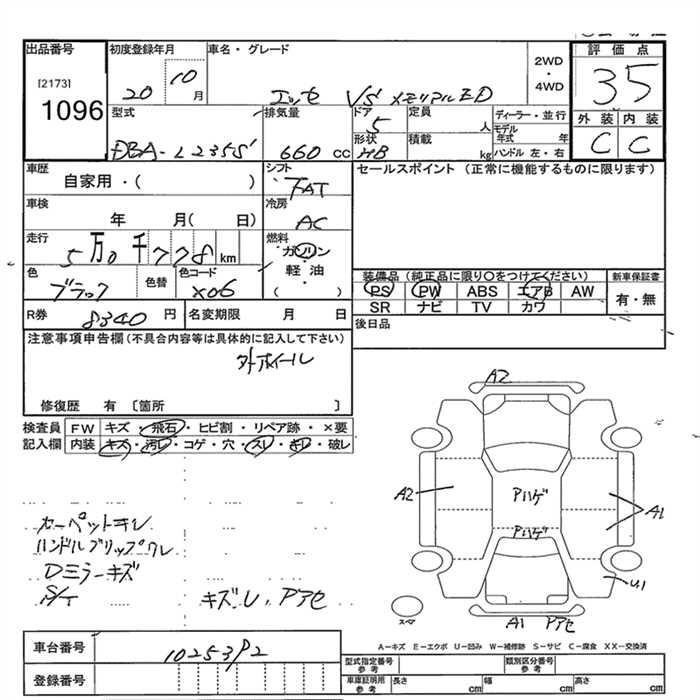 出品番号
[2173]
1096
初度登録年月
20 10 月
車名・グレード
エッセ VS メモリアルED
2WD
・
4WD
評価点
35
型式
DBA-L235S
排気量
660 cc
ドア
5
形状
HB
定員
人
積載
kg
ディーラー・並行
モデル
年式 年
ハンドル 左・右
外装 内装
C C
車歴
自家用・( )
シフト
FAT
セールスポイント (正常に機能するものに限ります)
車検
年 月( 日)
冷房
AC
走行
5万0千778km
燃料
ガソリン
軽・油
( )
色
ブラック
色替
色コード
X06
装備品 (純正品に限り○をつけてください)
新車保証書
PS PW ABS エアB AW
有・無
SR ナビ TV カワ
R券
8340 円
名変期限 月 日
後日品
注意事項申告欄 (不具合内容等は具体的に記入して下さい)
外ホイール
修復歴 有 〔箇所 〕
検査員 FW キズ・飛石・ヒビ割・リペア跡・×要
記入欄 内装 キズ・汚レ・コゲ・穴・スレ・キレ・破レ
A2
A2
Pハゲ
Pハゲ
A1
U1
A1 Pアセ
スペア
カーペットキレ
ハンドルグリップスレ
Dミラーキズ
S/T キズU、Pアセ
A−キズ E−エクボ U−凹み W−補修跡 S−サビ C−腐食 XX−交換済
車台番号
登録番号
型式指定番号
参考
類別区分番号
参考
車庫証明所
参考
長さ cm 幅 cm 高さ cm